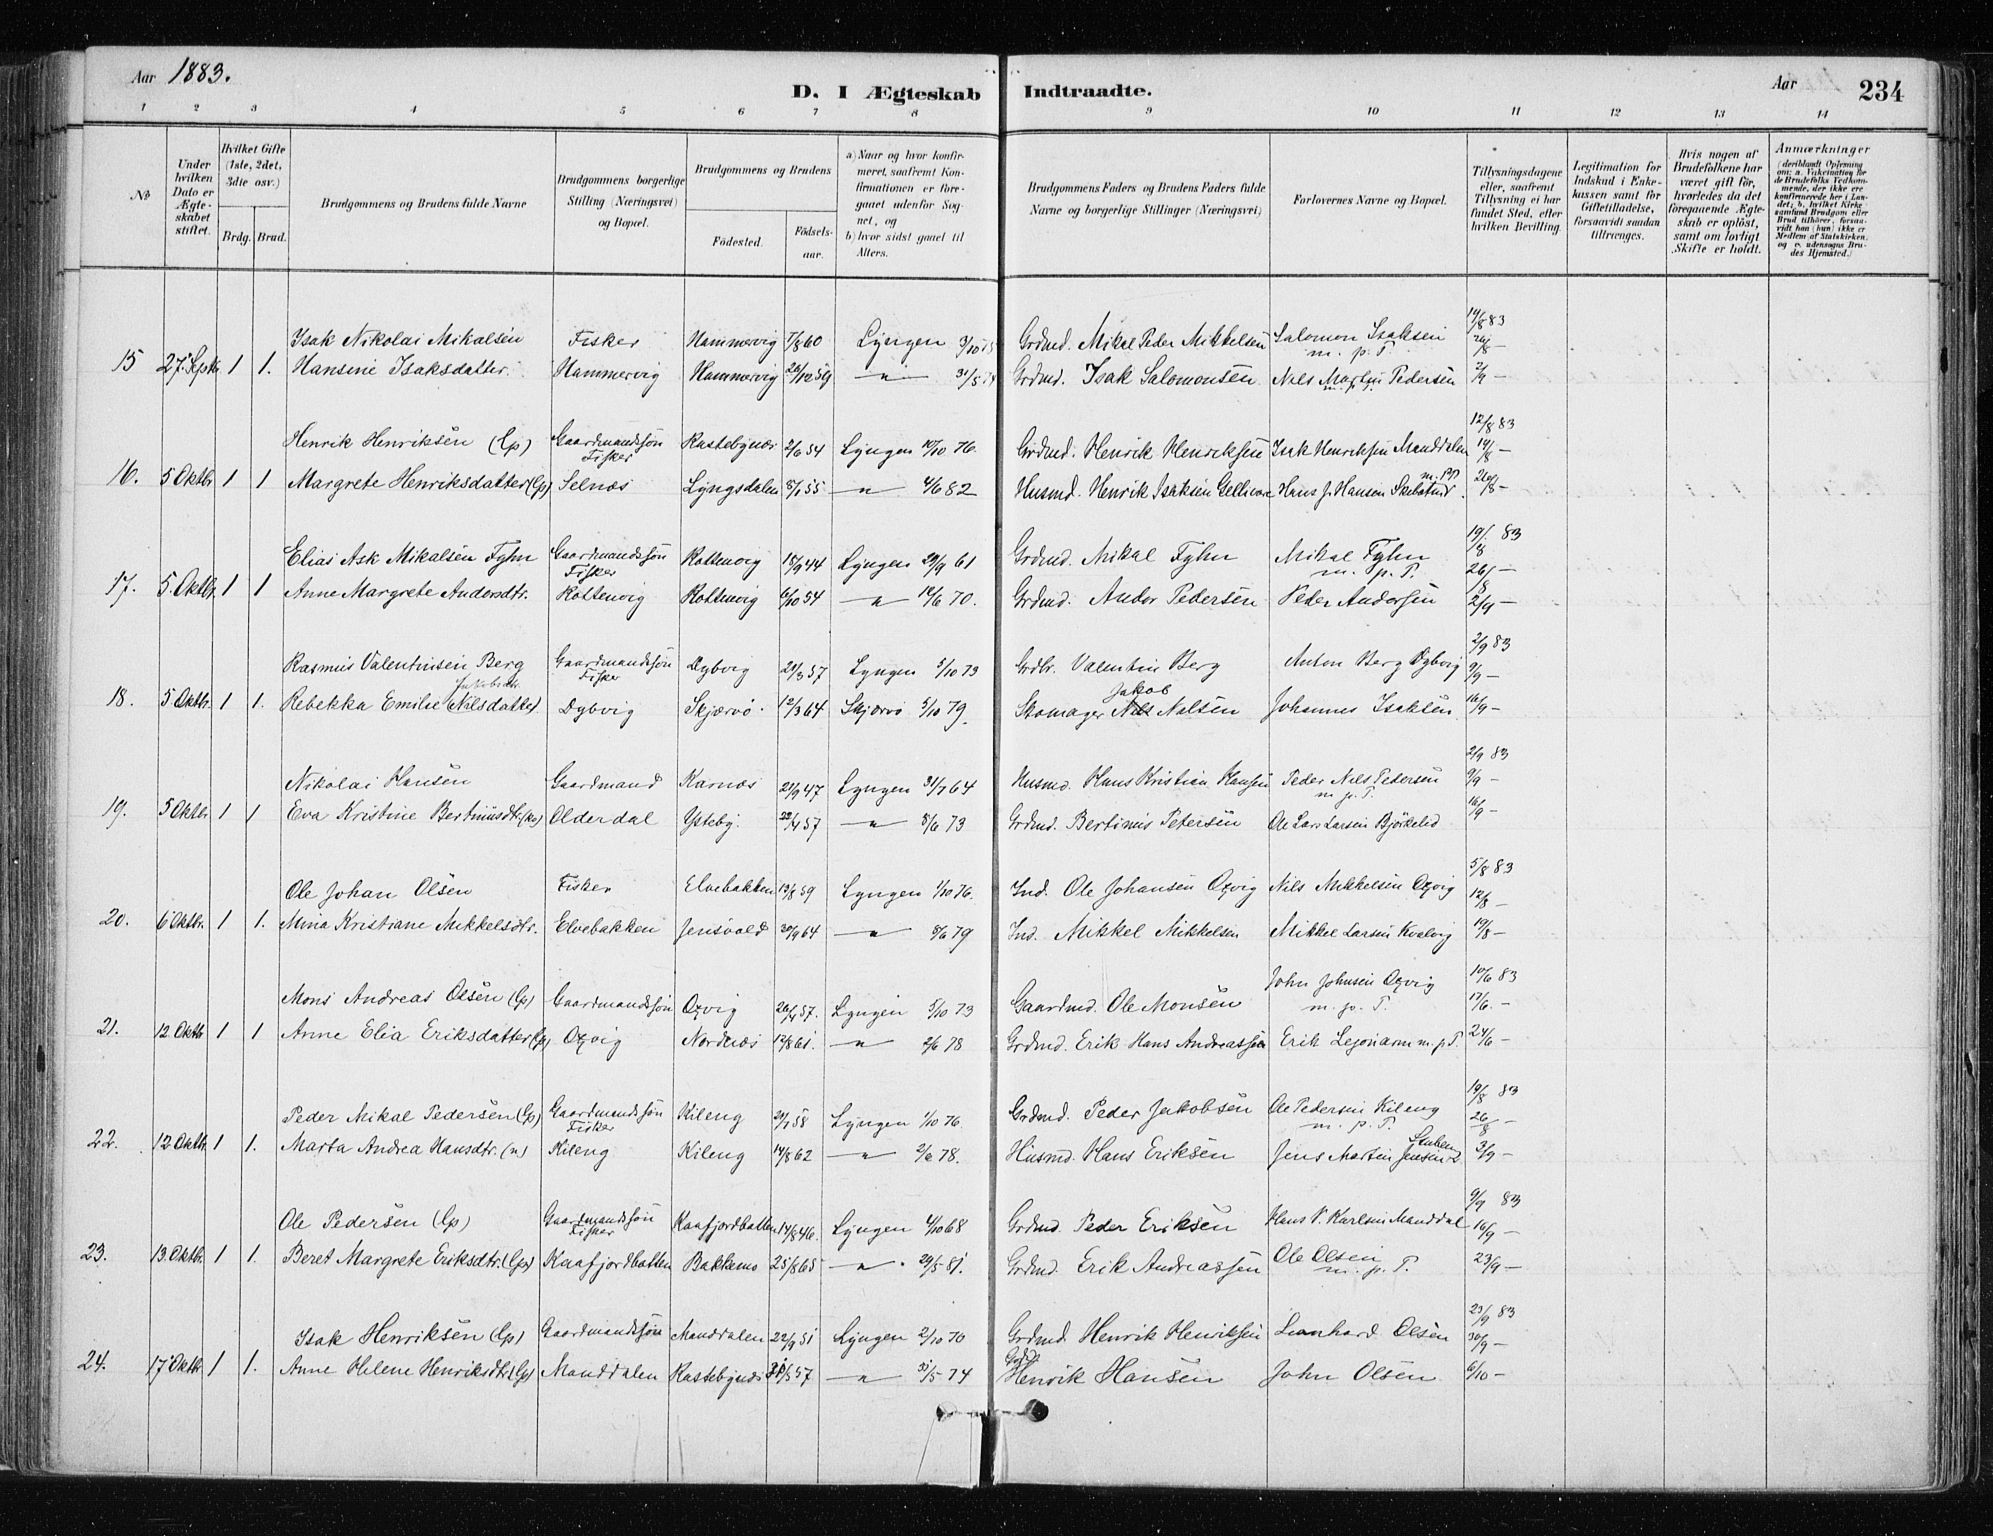 Aar 1883.
D. I Ægteskab Indtraadte.
Aar 234
1 2 3 4 5 6 7 8 9 10 11 12 13 14
No
Under hvilken Dato er Ægteskabet stiftet.
Hvilket Gifte (1ste, 2det, 3die osv.)
Brdg. Brud.
Brudgommens og Brudens fulde Navne
Brudgommens borgerlige Stilling (Næringsvei) og Bopæl.
Brudgommens og Brudens
Fødested. Fødselsaar.
a) Naar og hvor konfirmeret, saafremt Konfirmationen er foregaaet udenfor Sognet, og
b) hvor sidst gaaet til Alters.
Brudgommens Faders og Brudens Faders fulde Navne og borgerlige Stillinger (Næringsvei)
Forlovernes Navne og Bopæl.
Tillysningsdagene eller, saafremt Tillysning ei har fundet Sted, efter hvilken Bevilling.
Legitimation for Indskud i Enkekassen samt for Giftetilladelse, forsaavidt saadan tiltrænges.
Hvis nogen af Brudefolkene har været gift før, hvorledes da det foregaaende Ægteskab er opløst, samt om lovligt Skifte er holdt.
Anmærkninger (deriblandt Oplysning om: a. Vakcination for de Brudefolks Vedkommende, der ikke ere konfirmerede her i Landet; b. hvilket Kirkesamfund Brudgom eller Brud tilhører, forsaavidt han (hun) ikke er Medlem af Statskirken, og c. udensogns Brudes Hjemsted.)
Isak Nikolai Mikalsen Fisker Hammervig 7/8 60 Lyngen Grdmd. Mikal Peder Mikkelsen Salomon Isaksen m. p. T. 19/8 83 26/8
15 27. Septbr. 1 1. Hansine Isaksdatter. Hammervig Hammervig 59 — " — Grdmd. Isak Salomonsen Nils Martin Pedersen m. p. T. 2/9 —
Henrik Henriksen (lp) Gaardmandssøn Fisker Rastebynæs 2/6 54 Lyngen 76. Grdmd. Henrik Henriksen Isak Henriksen Manddalen 12/8 83 19/8 —
16. 5 Oktbr. 1 1 Margrete Henriksdatter (lp) Selnæs Lyngsdalen 8/1 55 — " — 4/6 82 Husmd. Henrik Isaksen Gellivare Hans J. Hansen m. p. T. 26/8 —
Elias Ask Mikalsen Fyhn Gaardmandssøn Fisker Rottenvig 18/9 44 Lyngen 29/9 61 Grdmd. Mikal Fyhn Mikal Fyhn m. p. T. 19/8 83 26/8 —
17. 5. Oktbr. 1 1 Anne Margrete Andersdtr. Rottenvig Rottenvig 6/10 54 — " — 12/6 70. Grdmd. Andor Pedersen Peder Andersen 2/9 —
Rasmus Valentinsen Berg Gaardmandssøn Fisker Dybvig 57 Lyngen 5/10 73 Grdbr. Valentin Berg Anton Berg Dybvig 2/9 83 9/9 —
18. 5 Oktbr. 1 1. Rebekka Emilie Jakobsdtr. (Nilsdatter) Dybvig Skjærvø. 12/3 64 Skjærvø 5/10 79. Skomager Jakob Nils Nilsen Johannes Isaksen 16/9 —
Nikolai Hansen Gaardmand Karnæs 21/9 47 Lyngen 31/7 64 Husmd. Hans Kristian Hansen Peder Nils Pedersen m. p. T. 2/9 83 9/9 —
19. 5 Oktbr. 1 1 Eva Kristine Bertiniusdtr. Olderdal Ysteby. 57 — " — 8/6 73 Grdmd. Bertinius Petersen Ole Lars Larsen Bjørkelid 16/9 —
Ole Johan Olsen Fisker Elvebakken 13/8 59 Lyngen 1/10 76. Ind. Ole Johansen Oxvig Nils Mikkelsen Oxvig 5/8 83 12/8 —
20. 6 Oktbr. 1 1. Mina Kristiane Mikkelsdtr. Elvebakken Jensvold 30/9 64 — " — 8/6 79 Ind. Mikkel Mikkelsen Mikkel Larsen Kvalvig 19/8 —
Mons Andreas Olsen (lp) Gaardmandssøn Oxvig 57. Lyngen 5/10 73 Gaardmd. Ole Monsen John Johnsen Oxvig m. p. T. 10/6 83 17/6. —
21. 12 Oktbr 1 1 Anne Elia Eriksdatter (lp) Oxvig Nordnæs 12/8 61. — " — 2/6 78 Grdmd. Erik Hans Andreassen Erik m. p. T. 24/6 —
Peder Mikal Pedersen (lp) Gaardmandssøn Fisker Kileng 58 Lyngen 1/10 76. Grdmd. Peder Jakobsen Ole Pedersen Kileng m. p. T. 19/8 83 26/8 —
22. 12 Oktbr. 1 1. Marta Andrea Hansdtr. (n) Kileng Kileng 14/8 62 — " — 2/6 78. Husmd. Hans Eriksen Jens Martin Jensen 3/9 —
Ole Pedersen (lp) Gaardmandssøn Fisker Kaafjordbotten 14/8 46. Lyngen 4/10 68 Grdmd. Peder Eriksen Hans P. Karlsen Manddal 9/9 83 16/9 —
23. 13. Oktbr. 1 1. Beret Margrete Eriksdtr. (lp) Kaafjordbotten Bakkemo 25/8 65 — " — 29/5 81. Grdmd. Erik Andreassen Ole Olsen m. p. T. 23/9 —
Isak Henriksen (lp) Gaardmandssøn Manddalen 22/9 51 Lyngen 2/10 70 Grdmd. Henrik Henriksen Leonhard Olsen 23/9 83 30/9 —
24. 17 Oktbr 1 1. Anne Helene Henriksdtr. (lp) Manddalen Rastebynæs 31/5 57 — " — 31/5 74 Henrik Hansen John Olsen 6/10 —